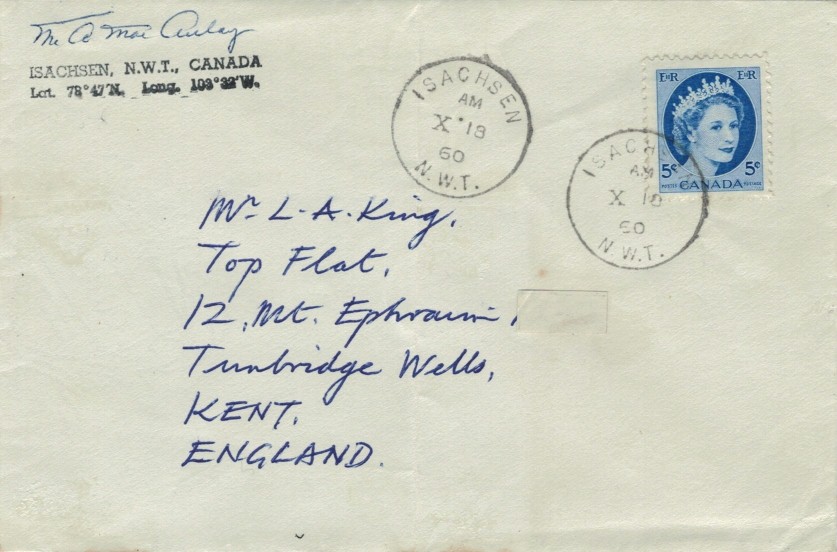 Mr A Mac Aulay
ISACHSEN, N.W.T., CANADA
Lat. 78°47'N. Long. 103°32'W.
ISACHSEN
AM
X 18
60
N.W.T.
EIIR EIIR
5¢ 5¢
POSTES CANADA POSTAGE
ISACH
AM
X 18
60
N.W.T.
Mr L-A-King,
Top Flat,
12, Mt. Ephraim,
Tunbridge Wells,
KENT,
ENGLAND.